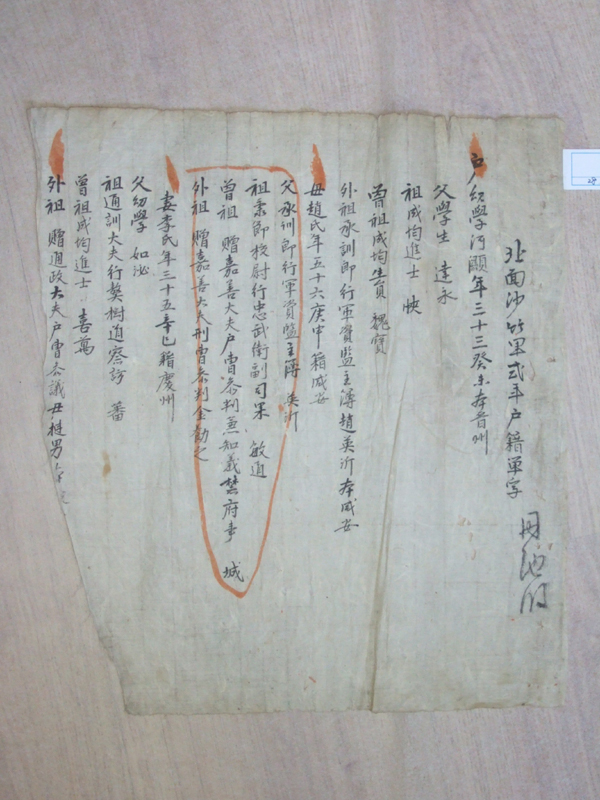 北面沙竹里式年戶籍單字
戶幼學河 年三十三癸未本晋州
父學生 達永
祖成均進士 快
曾祖成均生員 魏寶
外祖承訓郎行軍資監主簿趙英沂本咸安
母趙氏年五十六庚申籍咸安
父承訓郎行軍資監主簿 英沂
祖秉節校尉行忠武衛副司果 敏道
曾祖 贈嘉善大夫戶曹參判兼知義禁府事 城
外祖 贈嘉善大夫刑曹參判金勸之
妻李氏年三十五辛巳籍慶州
父幼學 如泌
祖通訓大夫行契樹道察訪 蕃
曾祖成均進士 喜萬
外祖 贈通政大夫戶曹參議 男